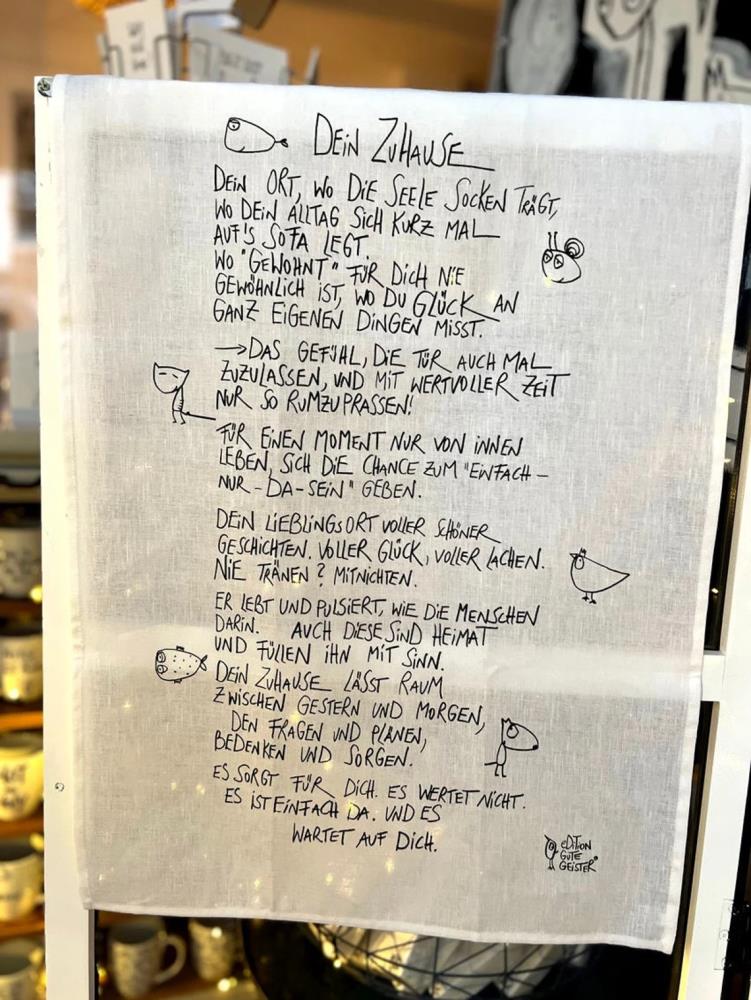 DEIN ZUHAUSE
DEIN ORT, WO DIE SEELE SOCKEN TRÄGT,
WO DEIN ALLTAG SICH KURZ MAL
AUF'S SOFA LEGT.
WO "GEWOHNT" FÜR DICH NIE
GEWÖHNLICH IST, WO DU GLÜCK AN
GANZ EIGENEN DINGEN MISST.
→DAS GEFÜHL, DIE TÜR AUCH MAL
ZUZULASSEN, UND MIT WERTVOLLER ZEIT
NUR SO RUMZUPRASSEN!
FÜR EINEN MOMENT NUR VON INNEN
LEBEN, SICH DIE CHANCE ZUM "EINFACH-
NUR-DA-SEIN" GEBEN.
DEIN LIEBLINGSORT VOLLER SCHÖNER
GESCHICHTEN. VOLLER GLÜCK, VOLLER LACHEN.
NIE TRÄNEN? MITNICHTEN.
ER LEBT UND PULSIERT, WIE DIE MENSCHEN
DARIN. AUCH DIESE SIND HEIMAT
UND FÜLLEN IHN MIT SINN.
DEIN ZUHAUSE LÄSST RAUM
ZWISCHEN GESTERN UND MORGEN,
DEN FRAGEN UND PLÄNEN,
BEDENKEN UND SORGEN.
ES SORGT FÜR DICH. ES WERTET NICHT.
ES IST EINFACH DA. UND ES
WARTET AUF DICH.
EDITION
GUTE
GEISTER®